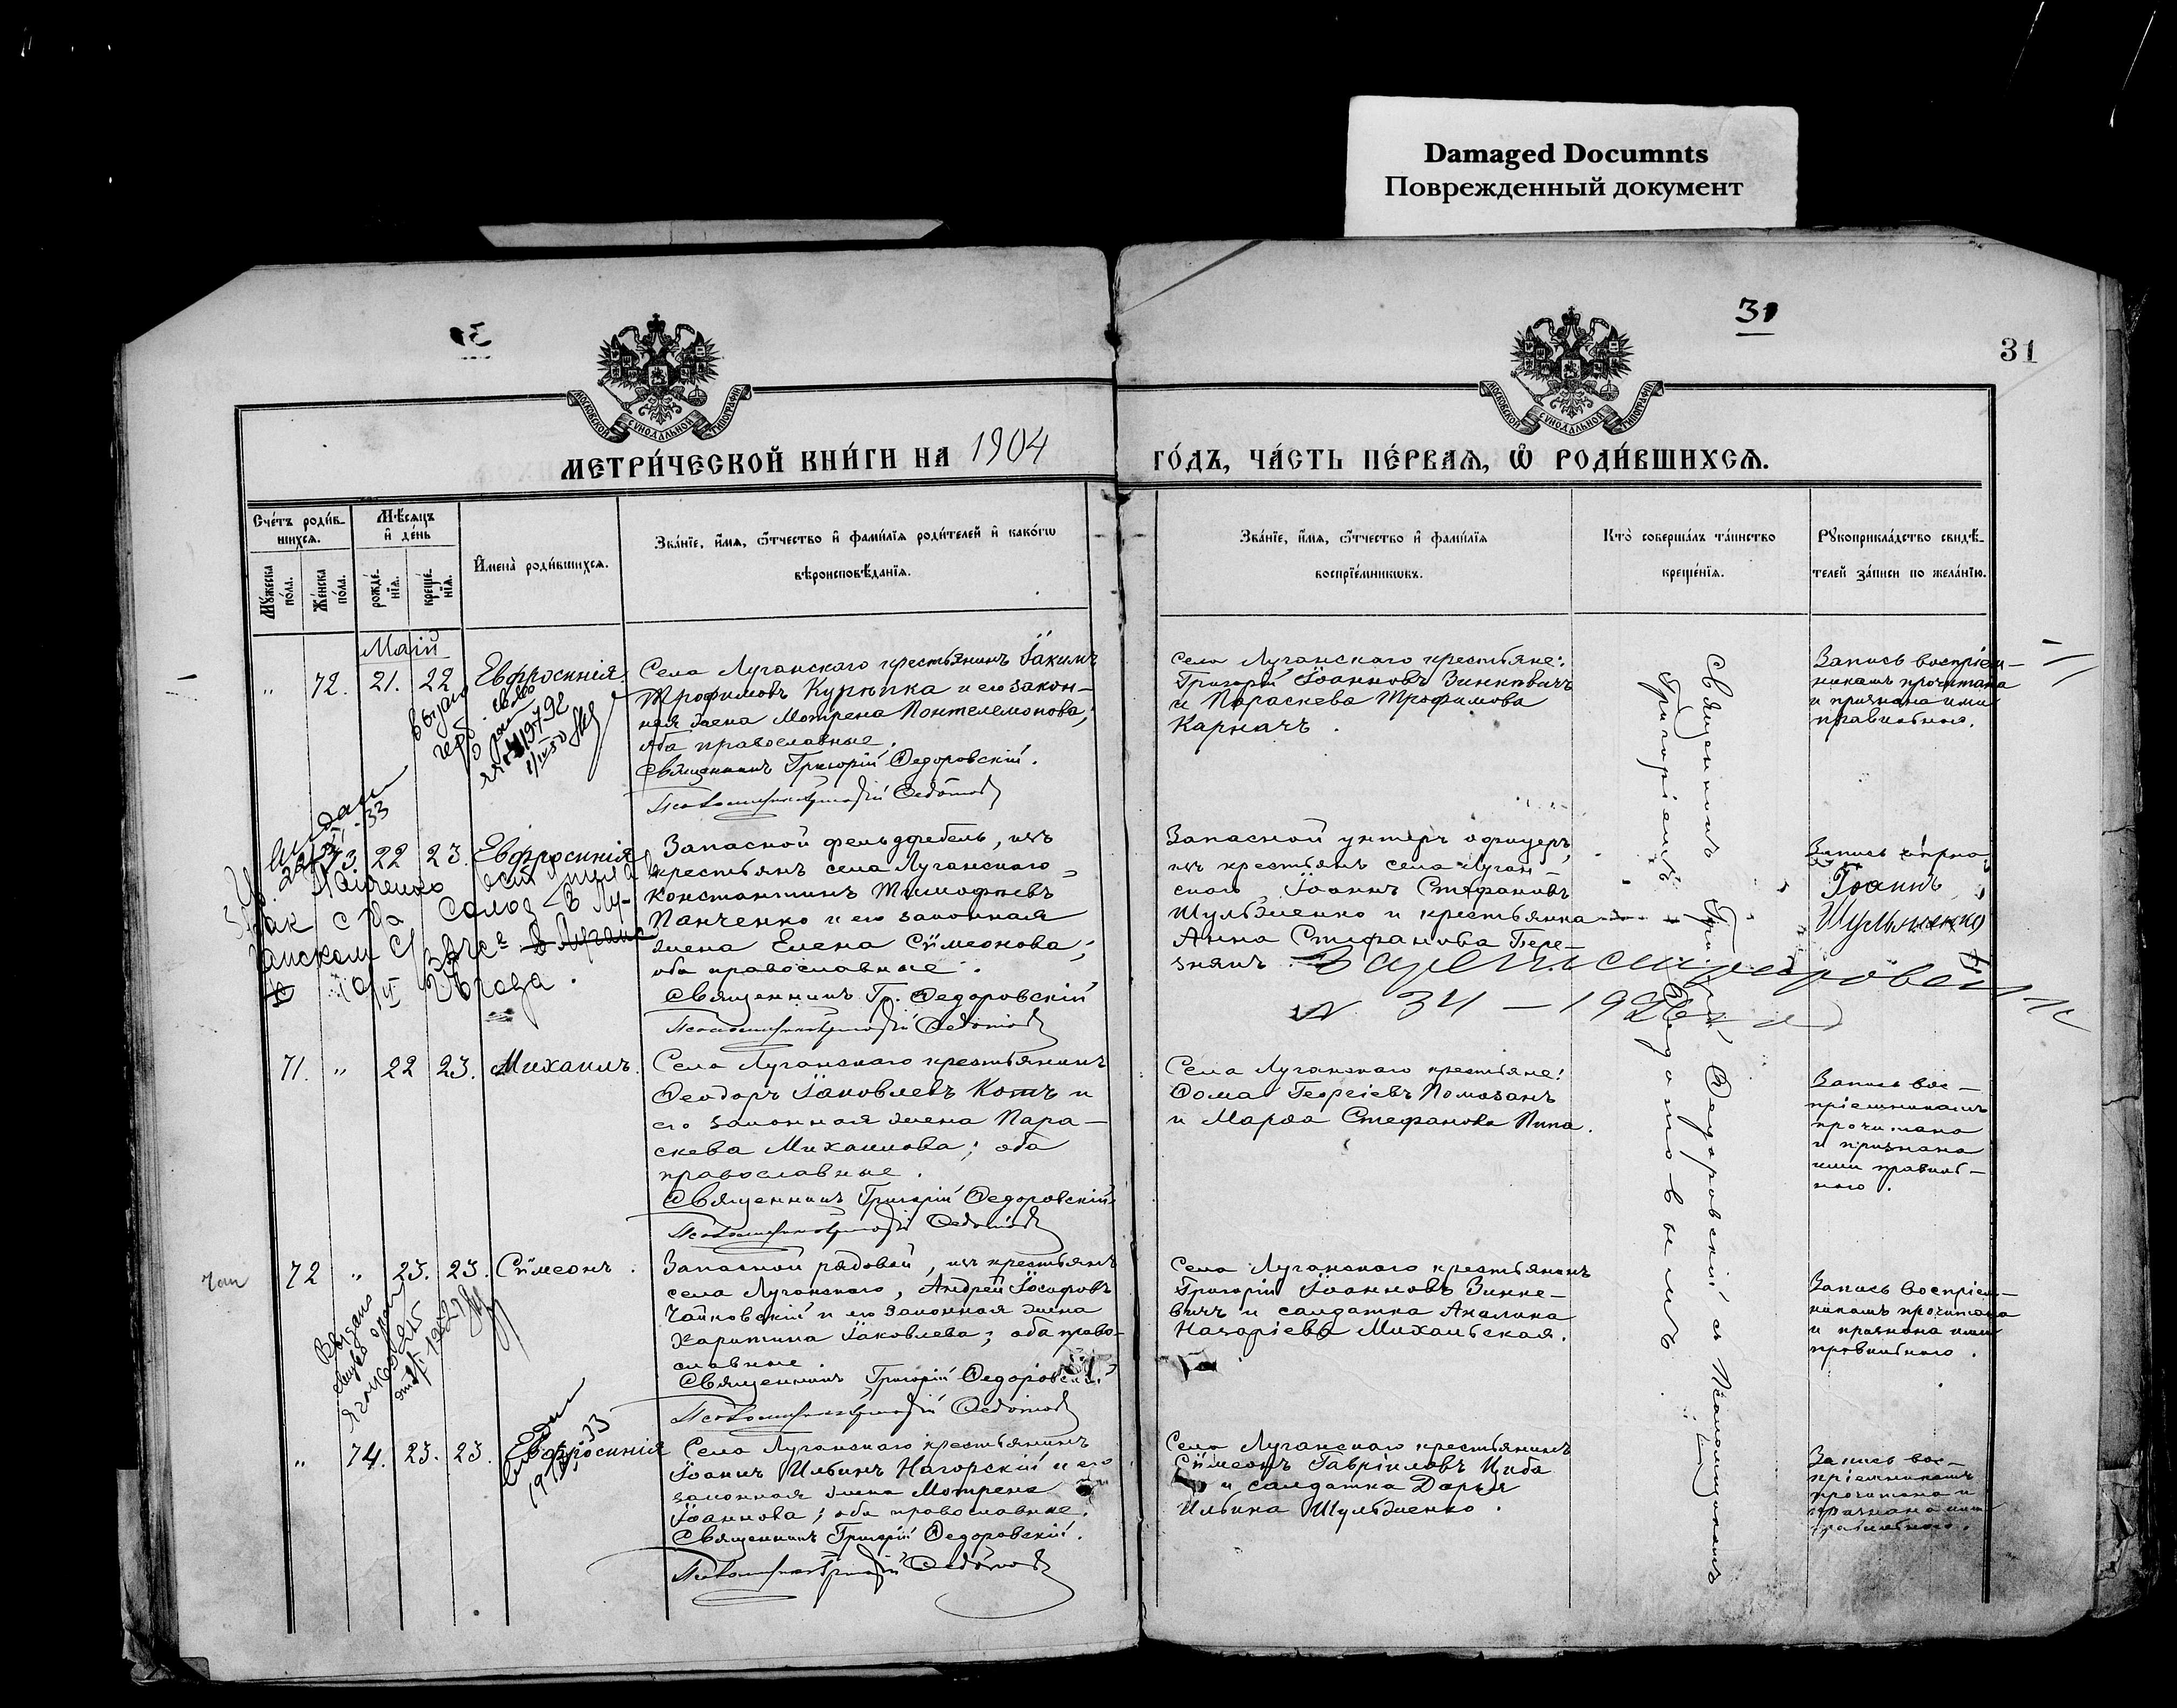 Damaged Documnts
Поврежденный документ
31
31
МОСКОВСКОЙ СѴНОДАЛЬНОЙ ТИПОГРАФІИ
МОСКОВСКОЙ СѴНОДАЛЬНОЙ ТИПОГРАФІИ
МЕТРИ́ЧЕСКОЙ КНИ́ГИ НА 1904
ГО́ДЪ, ЧА́СТЬ ПЕ́РВАѦ, Ѡ҆ РОДИ́ВШИХСѦ.
Сче́тъ роди́в-
шихсѧ.
Мꙋжеска по́ла.
Же́нска по́ла.
Мѣ́сѧцъ и҆ де́нь
рожде́-
нїѧ.
креще́-
нїѧ.
И҆мена̀ роди́вшихсѧ.
Зва́нїе, и҆́мѧ, ѻ҆́тчество и҆ фами́лїѧ роди́телей и҆ како́гѡ
вѣроисповѣ́данїѧ.
Зва́нїе, и҆́мѧ, ѻ҆́тчество и҆ фами́лїѧ
воспрїе́мникѡвъ.
Кто̀ соверша́лъ та́инство
креще́нїѧ.
Рꙋкоприкла́дство свидѣ́-
телей за́писи по жела́нїю.
Маій
" 72. 21. 22 Евфросинія
Села Луганскаго крестьянинъ Іакимъ
Трофимовъ Курѣпка и его закон-
ная жена Мотрена Понтелемонова;
оба православные.
Священникъ Григорій Ѳедоровскій.
Псаломщикъ Григорій Ѳедотовъ
Села Луганскаго крестьяне:
Григорій Іоанновъ Зинкевичъ
и Параскева Трофимова
Карначъ.
Запись воспріем-
никамъ прочитана
и признана ими
правильною.
73 22 23. Евфросинія
Запасной фельдфебель, изъ
крестьянъ села Луганскаго
Константинъ Тимофѣевъ
Панченко и его законная
жена Елена Сѵмеонова;
оба православные.
Священникъ Гр. Ѳедоровскій
Псаломщикъ Григорій Ѳедотовъ
Запасной унтеръ офицеръ,
изъ крестьянъ села Луган-
скаго Іоаннъ Стефановъ
Шульженко и крестьянка
Анна Стефанова Бере-
знякъ.
Запись вѣрна
Іоаннъ
Шульженко
71. " 22 23. Михаилъ.
Села Луганскаго крестьянинъ
Ѳеодоръ Іаковлевъ Котъ и
его законная жена Пара-
скева Михаилова; оба
православные.
Священникъ Григорій Ѳедоровскій
Псаломщикъ Григорій Ѳедотовъ
Села Луганскаго крестьяне:
Ѳома Георгіевъ Помазанъ
и Марѳа Стефанова Пипа.
Запись вос-
пріемникамъ
прочитана
и признана
ими правиль-
ною.
72 " 23. 23. Сѵмеонъ.
Запасной рядовой, изъ крестьянъ
села Луганскаго, Андрей Іосифовъ
Чайковскій и его законная жена
Харитина Іаковлева; оба право-
славные.
Священникъ Григорій Ѳедоровскій
Псаломщикъ Григорій Ѳедотовъ
Села Луганскаго крестьянинъ
Григорій Іоанновъ Зинке-
вичъ и солдатка Акилина
Назаріева Михальская.
Запись воспріем-
никамъ прочитана
и признана ими
правильною.
" 74. 23. 23. Евфросинія
Села Луганскаго крестьянинъ
Іоаннъ Ильинъ Нагорскій и его
законная жена Мотрена
Іоаннова; оба православные.
Священникъ Григорій Ѳедоровскій.
Псаломщикъ Григорій Ѳедотовъ
Села Луганскаго крестьянинъ
Сѵмеонъ Гавріиловъ Циба
и солдатка Дарья
Ильина Шульженко.
Запись вос-
пріемникамъ
прочитана и
признана ими
правильною.
Священникъ Григорій Ѳедоровскій съ Псаломщикомъ
Григоріемъ Ѳедотовымъ.